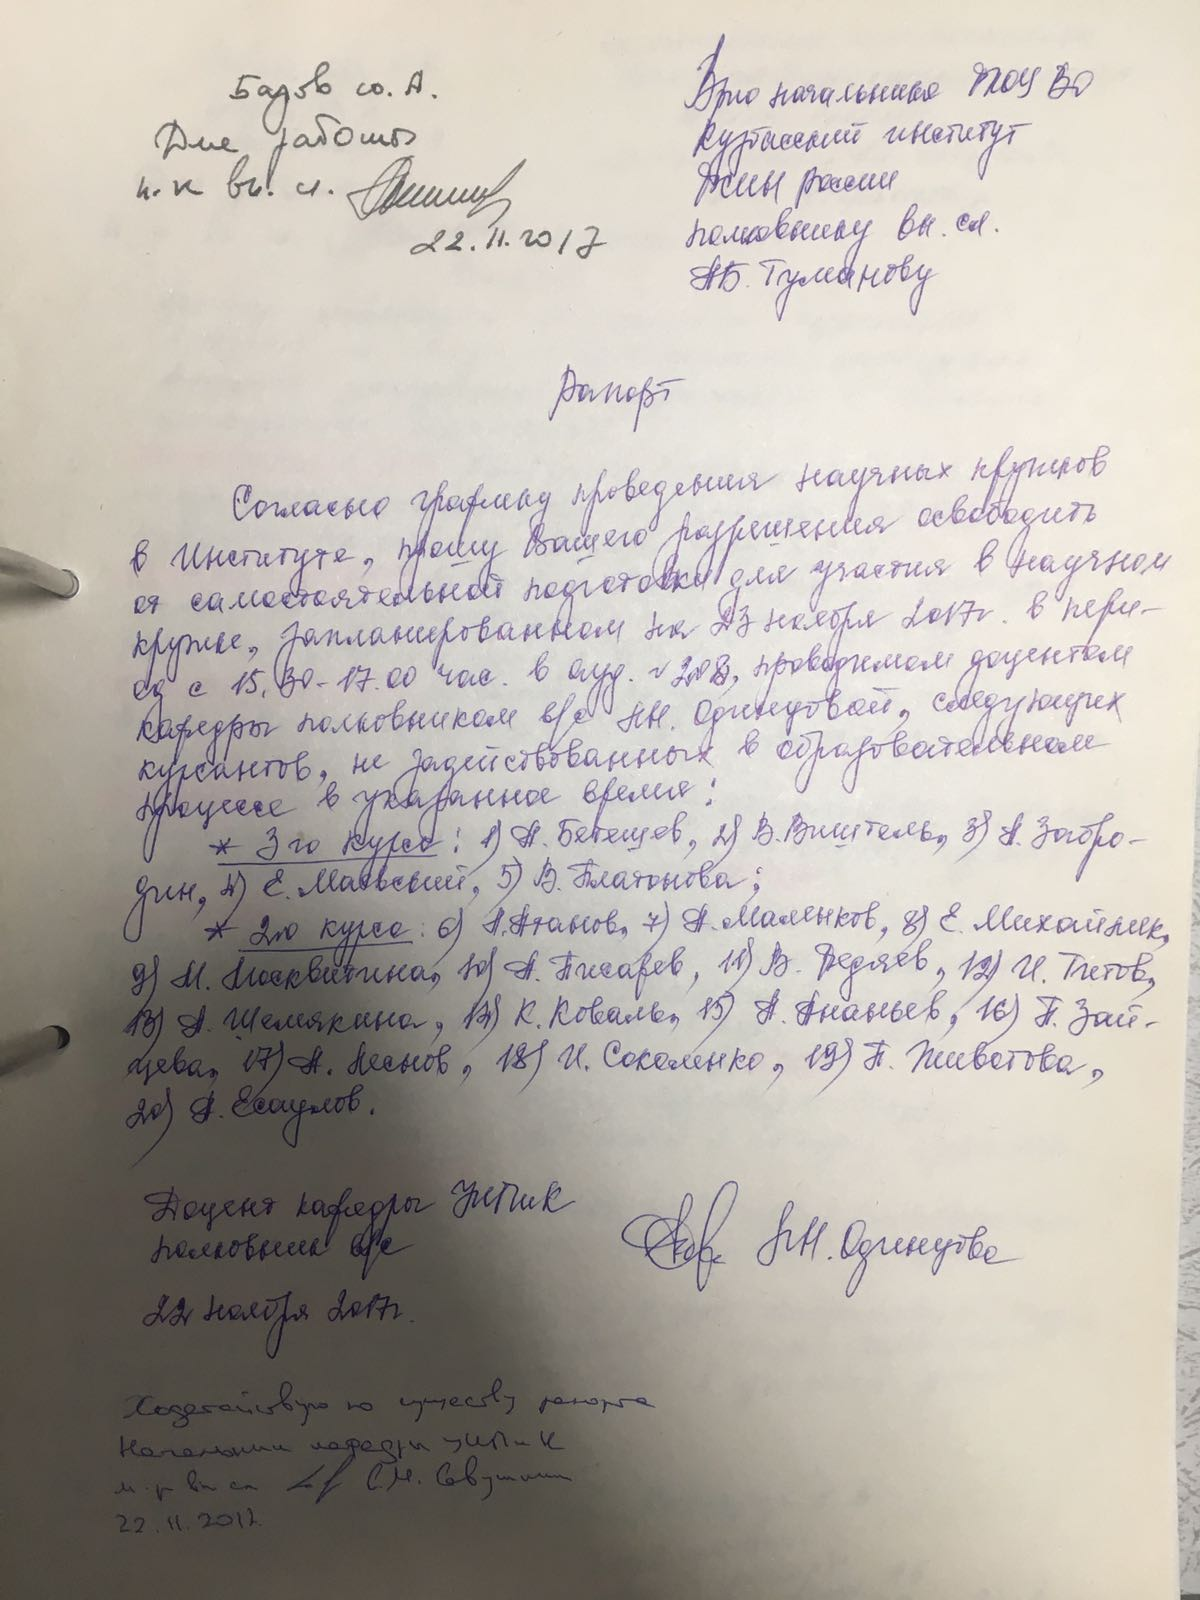 Бадов Ю. А.
Для работы
п-к вн. сл.
22.11.2017
Врио начальника ФКОУ ВО
Кузбасский институт
ФСИН России
полковнику вн. сл.
А.Б. Туманову
Рапорт
Согласно графику проведения научных кружков
в Институте, прошу Вашего разрешения освободить
от самостоятельной подготовки для участия в научном
кружке, запланированном на 23 ноября 2017г. в пери-
од с 15.30-17.00 час. в ауд. №208, проводимом доцентом
кафедры полковником в/с Н.Н. Одинцовой, следующих
курсантов, не задействованных в образовательном
процессе в указанное время:
* 3го курса: 1) А. Бетешев, 2) В. Виштель, 3) А. Загоро-
дин, 4) Е. Маевский, 5) В. Платонова;
* 2го курса: 6) А. Атанов, 7) А. Маленков, 8) Е. Михайлик,
9) М. Москвитина, 10) А. Писарев, 11) В. Федяев, 12) И. Титов,
13) А. Шемякина, 14) К. Коваль, 15) А. Ананьев, 16) П. Зай-
цева, 17) А. Леснов, 18) И. Соколенко, 19) П. Животова,
20) А. Есаулов.
Доцент кафедры УИПиК
полковник в/с
Н.Н. Одинцова
22 ноября 2017г.
Ходатайствую по существу рапорта
Начальник кафедры УИПиК
м-р вн сл С.Н.
22.11.2017